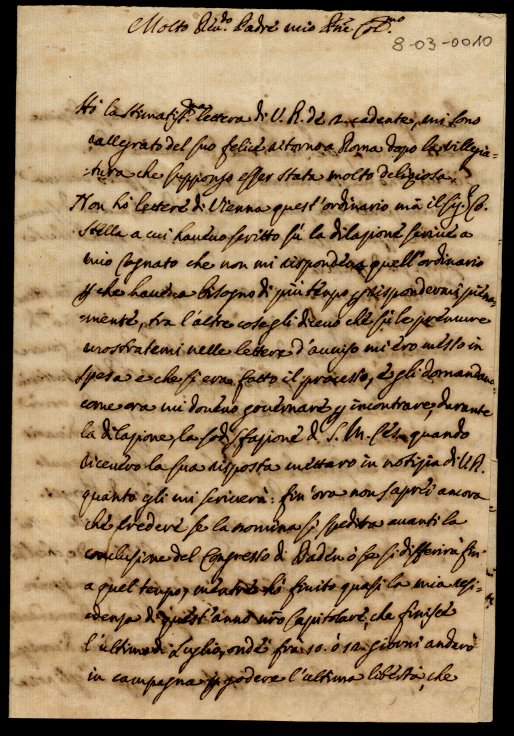 Molto Reu.do Padre mio Pne Col.mo
8-03-0010
Hò la stimatis.ma lettera di V. R. de 2 cadente, mi sono
rallegrato del suo felice ritorno a Roma dopo la villegia=
tura che suppongo esser stata molto deliziosa.
Non hò lettere di Vienna quest'ordinario mà il sig.r Co.
Stella a cui haueuo scritto sù la dilazione scriue a
mio Cognato che non mi rispondeua quell'ordinario
che haueua bisogno di più tempo rispondermi
=mente, tra l'altre cose gli diceuo che sù le premure
mostratemi nelle lettere d'auuiso mi ero messo in
spesa e che si era fatto il processo, e gli domandauo
come ora mi doueuo gouernare incontrare, durante
la dilazione, la sodisfazione di S. M. Ces. quando
riceuero la sua risposta mettaro in notizia di V. R.
quanto egli mi scriuerà: fin'ora non saprei ancora
che credere se la nomina si spedira auanti la
conclusione del Congresso di Baden ò se si differirà fin
a quel tempo, mentre hò finito quasi la mia resi=
denza di quest'anno nro Capitolare che finisce
l'ultimo di Luglio, onde frà 10. ò 12 giorni andarò
in campagna godere l'ultima libertà, che